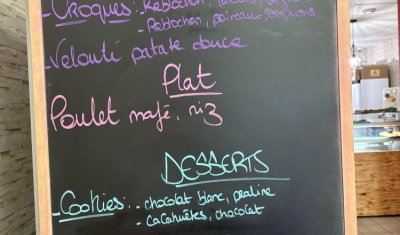 -Croques: - Reblochon, lardons,
- Reblochon, poireaux, oignons
-Velouté patate douce
Plat
Poulet mafé, riz
DESSERTS
-Cookies: - chocolat blanc, praline
- cacahuètes, chocolat